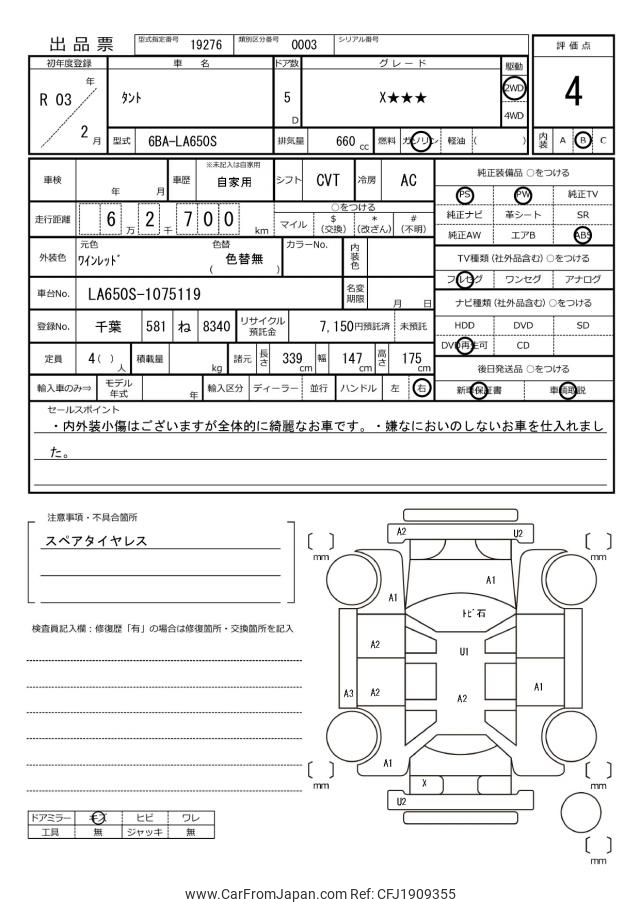 出品票
型式指定番号 19276 類別区分番号 0003 シリアル番号
評価点
4
内装 A B C
初年度登録 車名 ドア数 グレード 駆動
R 03 年 2 月
タント
5 D
X★★★
2WD
4WD
型式 6BA-LA650S 排気量 660 cc 燃料 ガソリン 軽油 ( )
車検 年 月 車歴 ※未記入は自家用 自家用 シフト CVT 冷房 AC
走行距離 6 万 2 千 7 0 0 km
○をつける
マイル $(交換) *(改ざん) #(不明)
外装色 元色 ワインレッド 色替 ( 色替無 ) カラーNo. 内装色
車台No. LA650S-1075119 名変期限 月 日
登録No. 千葉 581 ね 8340 リサイクル預託金 7,150円預託済 未預託
定員 4 ( ) 人 積載量 kg 諸元 長さ 339 cm 幅 147 cm 高さ 175 cm
輸入車のみ⇒ モデル年式 年 輸入区分 ディーラー 並行 ハンドル 左 右
純正装備品 ○をつける
PS PW 純正TV
純正ナビ 革シート SR
純正AW エアB ABS
TV種類 (社外品含む) ○をつける
フルセグ ワンセグ アナログ
ナビ種類 (社外品含む) ○をつける
HDD DVD SD
DVD再生可 CD
後日発送品 ○をつける
新車保証書 車輌取説
セールスポイント
・内外装小傷はございますが全体的に綺麗なお車です。・嫌なにおいのしないお車を仕入れまし
た。
注意事項・不具合箇所
スペアタイヤレス
検査員記入欄：修復歴「有」の場合は修復箇所・交換箇所を記入
ドアミラー キズ ヒビ ワレ
工具 無 ジャッキ 無
A2 U2
mm mm
A1
A1
トビ石
A2 U1
A3 A2 A2 A1
A1
X
mm mm
U2
mm
www.CarFromJapan.com Ref: CFJ1909355